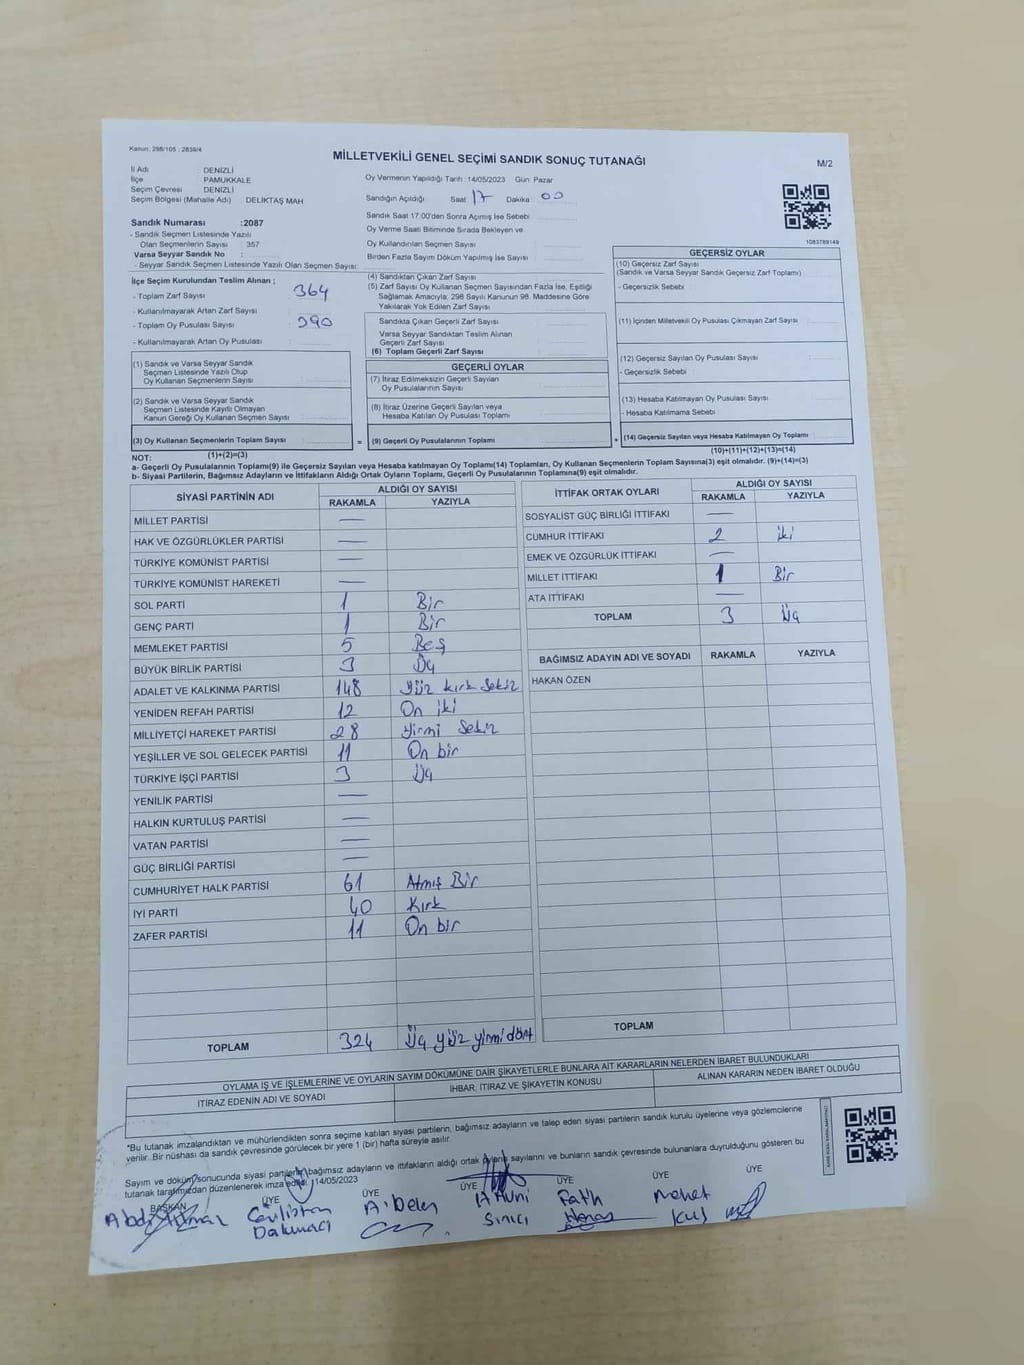 Kanun: 298/105 : 2839/4
MİLLETVEKİLİ GENEL SEÇİMİ SANDIK SONUÇ TUTANAĞI
M/2
İl Adı : DENİZLİ
İlçe : PAMUKKALE
Seçim Çevresi : DENİZLİ
Seçim Bölgesi (Mahalle Adı) : DELİKTAŞ MAH
Sandık Numarası :2087
- Sandık Seçmen Listesinde Yazılı
Olan Seçmenlerin Sayısı : 357
Varsa Seyyar Sandık No :
- Seyyar Sandık Seçmen Listesinde Yazılı Olan Seçmen Sayısı:
Oy Vermenin Yapıldığı Tarih :14/05/2023 Gün: Pazar
Sandığın Açıldığı Saat 17 Dakika 00
Sandık Saat 17:00'den Sonra Açmış İse Sebebi
Oy Verme Saati Bitiminde Sırada Bekleyen ve
Oy Kullandırılan Seçmen Sayısı
Birden Fazla Sayım Döküm Yapılmış İse Sayısı
1083789149
İlçe Seçim Kurulundan Teslim Alınan ;
- Toplam Zarf Sayısı : 364
- Kullanılmayarak Artan Zarf Sayısı :
- Toplam Oy Pusulası Sayısı : 390
- Kullanılmayarak Artan Oy Pusulası :
(1) Sandık ve Varsa Seyyar Sandık
Seçmen Listesinde Yazılı Olup
Oy Kullanan Seçmenlerin Sayısı :
(2) Sandık ve Varsa Seyyar Sandık
Seçmen Listesinde Kayıtlı Olmayan
Kanun Gereği Oy Kullanan Seçmen Sayısı :
(3) Oy Kullanan Seçmenlerin Toplam Sayısı
(1)+(2)=(3)
(4) Sandıktan Çıkan Zarf Sayısı
(5) Zarf Sayısı Oy Kullanan Seçmen Sayısından Fazla İse, Eşitliği
Sağlamak Amacıyla, 298 Sayılı Kanunun 98. Maddesine Göre
Yakılarak Yok Edilen Zarf Sayısı
Sandıkta Çıkan Geçerli Zarf Sayısı
Varsa Seyyar Sandıktan Teslim Alınan
Geçerli Zarf Sayısı
(6) Toplam Geçerli Zarf Sayısı
GEÇERLİ OYLAR
(7) İtiraz Edilmeksizin Geçerli Sayılan
Oy Pusulalarının Sayısı
(8) İtiraz Üzerine Geçerli Sayılan veya
Hesaba Katılan Oy Pusulası Toplamı
= (9) Geçerli Oy Pusulalarının Toplamı
GEÇERSİZ OYLAR
(10) Geçersiz Zarf Sayısı
(Sandık ve Varsa Seyyar Sandık Geçersiz Zarf Toplamı)
- Geçersizlik Sebebi
(11) İçinden Milletvekili Oy Pusulası Çıkmayan Zarf Sayısı
(12) Geçersiz Sayılan Oy Pusulası Sayısı
- Geçersizlik Sebebi
(13) Hesaba Katılmayan Oy Pusulası Sayısı
- Hesaba Katılmama Sebebi
+ (14) Geçersiz Sayılan veya Hesaba Katılmayan Oy Toplamı
(10)+(11)+(12)+(13)=(14)
NOT:
a- Geçerli Oy Pusulalarının Toplamı(9) ile Geçersiz Sayılan veya Hesaba katılmayan Oy Toplamı(14) Toplamları, Oy Kullanan Seçmenlerin Toplam Sayısına(3) eşit olmalıdır. (9)+(14)=(3)
b- Siyasi Partilerin, Bağımsız Adayların ve İttifakların Aldığı Ortak Oyların Toplamı, Geçerli Oy Pusulalarının Toplamına(9) eşit olmalıdır.
SİYASİ PARTİNİN ADI ALDIĞI OY SAYISI
RAKAMLA YAZIYLA
MİLLET PARTİSİ —
HAK VE ÖZGÜRLÜKLER PARTİSİ —
TÜRKİYE KOMÜNİST PARTİSİ —
TÜRKİYE KOMÜNİST HAREKETİ —
SOL PARTİ 1 Bir
GENÇ PARTİ 1 Bir
MEMLEKET PARTİSİ 5 Beş
BÜYÜK BİRLİK PARTİSİ 3 Üç
ADALET VE KALKINMA PARTİSİ 148 Yüz kırk sekiz
YENİDEN REFAH PARTİSİ 12 On iki
MİLLİYETÇİ HAREKET PARTİSİ 28 Yirmi Sekiz
YEŞİLLER VE SOL GELECEK PARTİSİ 11 On bir
TÜRKİYE İŞÇİ PARTİSİ 3 Üç
YENİLİK PARTİSİ —
HALKIN KURTULUŞ PARTİSİ —
VATAN PARTİSİ —
GÜÇ BİRLİĞİ PARTİSİ —
CUMHURİYET HALK PARTİSİ 61 Atmış Bir
İYİ PARTİ 40 Kırk
ZAFER PARTİSİ 11 On bir
TOPLAM 324 Üç yüz yirmi dört
İTTİFAK ORTAK OYLARI ALDIĞI OY SAYISI
RAKAMLA YAZIYLA
SOSYALİST GÜÇ BİRLİĞİ İTTİFAKI —
CUMHUR İTTİFAKI 2 iki
EMEK VE ÖZGÜRLÜK İTTİFAKI —
MİLLET İTTİFAKI 1 Bir
ATA İTTİFAKI —
TOPLAM 3 Üç
BAĞIMSIZ ADAYIN ADI VE SOYADI RAKAMLA YAZIYLA
HAKAN ÖZEN
TOPLAM
OYLAMA İŞ VE İŞLEMLERİNE VE OYLARIN SAYIM DÖKÜMÜNE DAİR ŞİKAYETLERLE BUNLARA AİT KARARLARIN NELERDEN İBARET BULUNDUKLARI
İTİRAZ EDENİN ADI VE SOYADI İHBAR, İTİRAZ VE ŞİKAYETİN KONUSU ALINAN KARARIN NEDEN İBARET OLDUĞU
*Bu tutanak imzalandıktan ve mühürlendikten sonra seçime katılan siyasi partilerin, bağımsız adayların ve talep eden siyasi partilerin sandık kurulu üyelerine veya gözlemcilerine
verilir. Bir nüshası da sandık çevresinde görülecek bir yere 1 (bir) hafta süreyle asılır.
Sayım ve döküm sonucunda siyasi partilerin, bağımsız adayların ve ittifakların aldığı ortak oyların sayılarını ve bunların sandık çevresinde bulunanlara duyurulduğunu gösteren bu
tutanak tarafımızdan düzenlenerek imza edildi. 14/05/2023
BAŞKAN ÜYE ÜYE ÜYE ÜYE ÜYE ÜYE
A. Belen Fatih Mehmet
Sinici Kuş